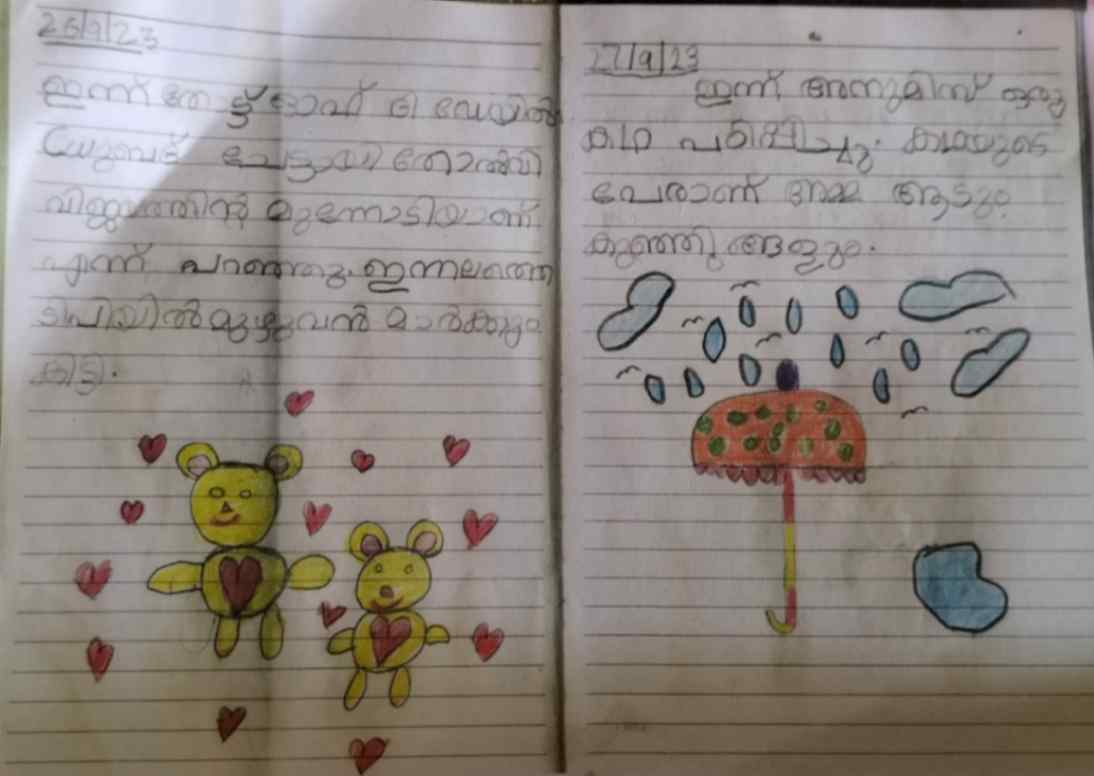 26/9/23
ഇന്ന് തോട്ട് ഓഫ് ദി ഡേയിൽ
ചേട്ടായി തോൽവി
വിജയത്തിന്റെ മുന്നോടിയാണ്
എന്ന് പറഞ്ഞു. ഇന്നലത്തെ
ടിപിയിൽ മുഴുവൻ മാർക്കും
കിട്ടി.
27/9/23
ഇന്ന് അനുമിസ് ഒരു
കഥ പഠിപ്പിച്ചു. കഥയുടെ
പേരാണ് അമ്മ ആടും
കുഞ്ഞുങ്ങളും.